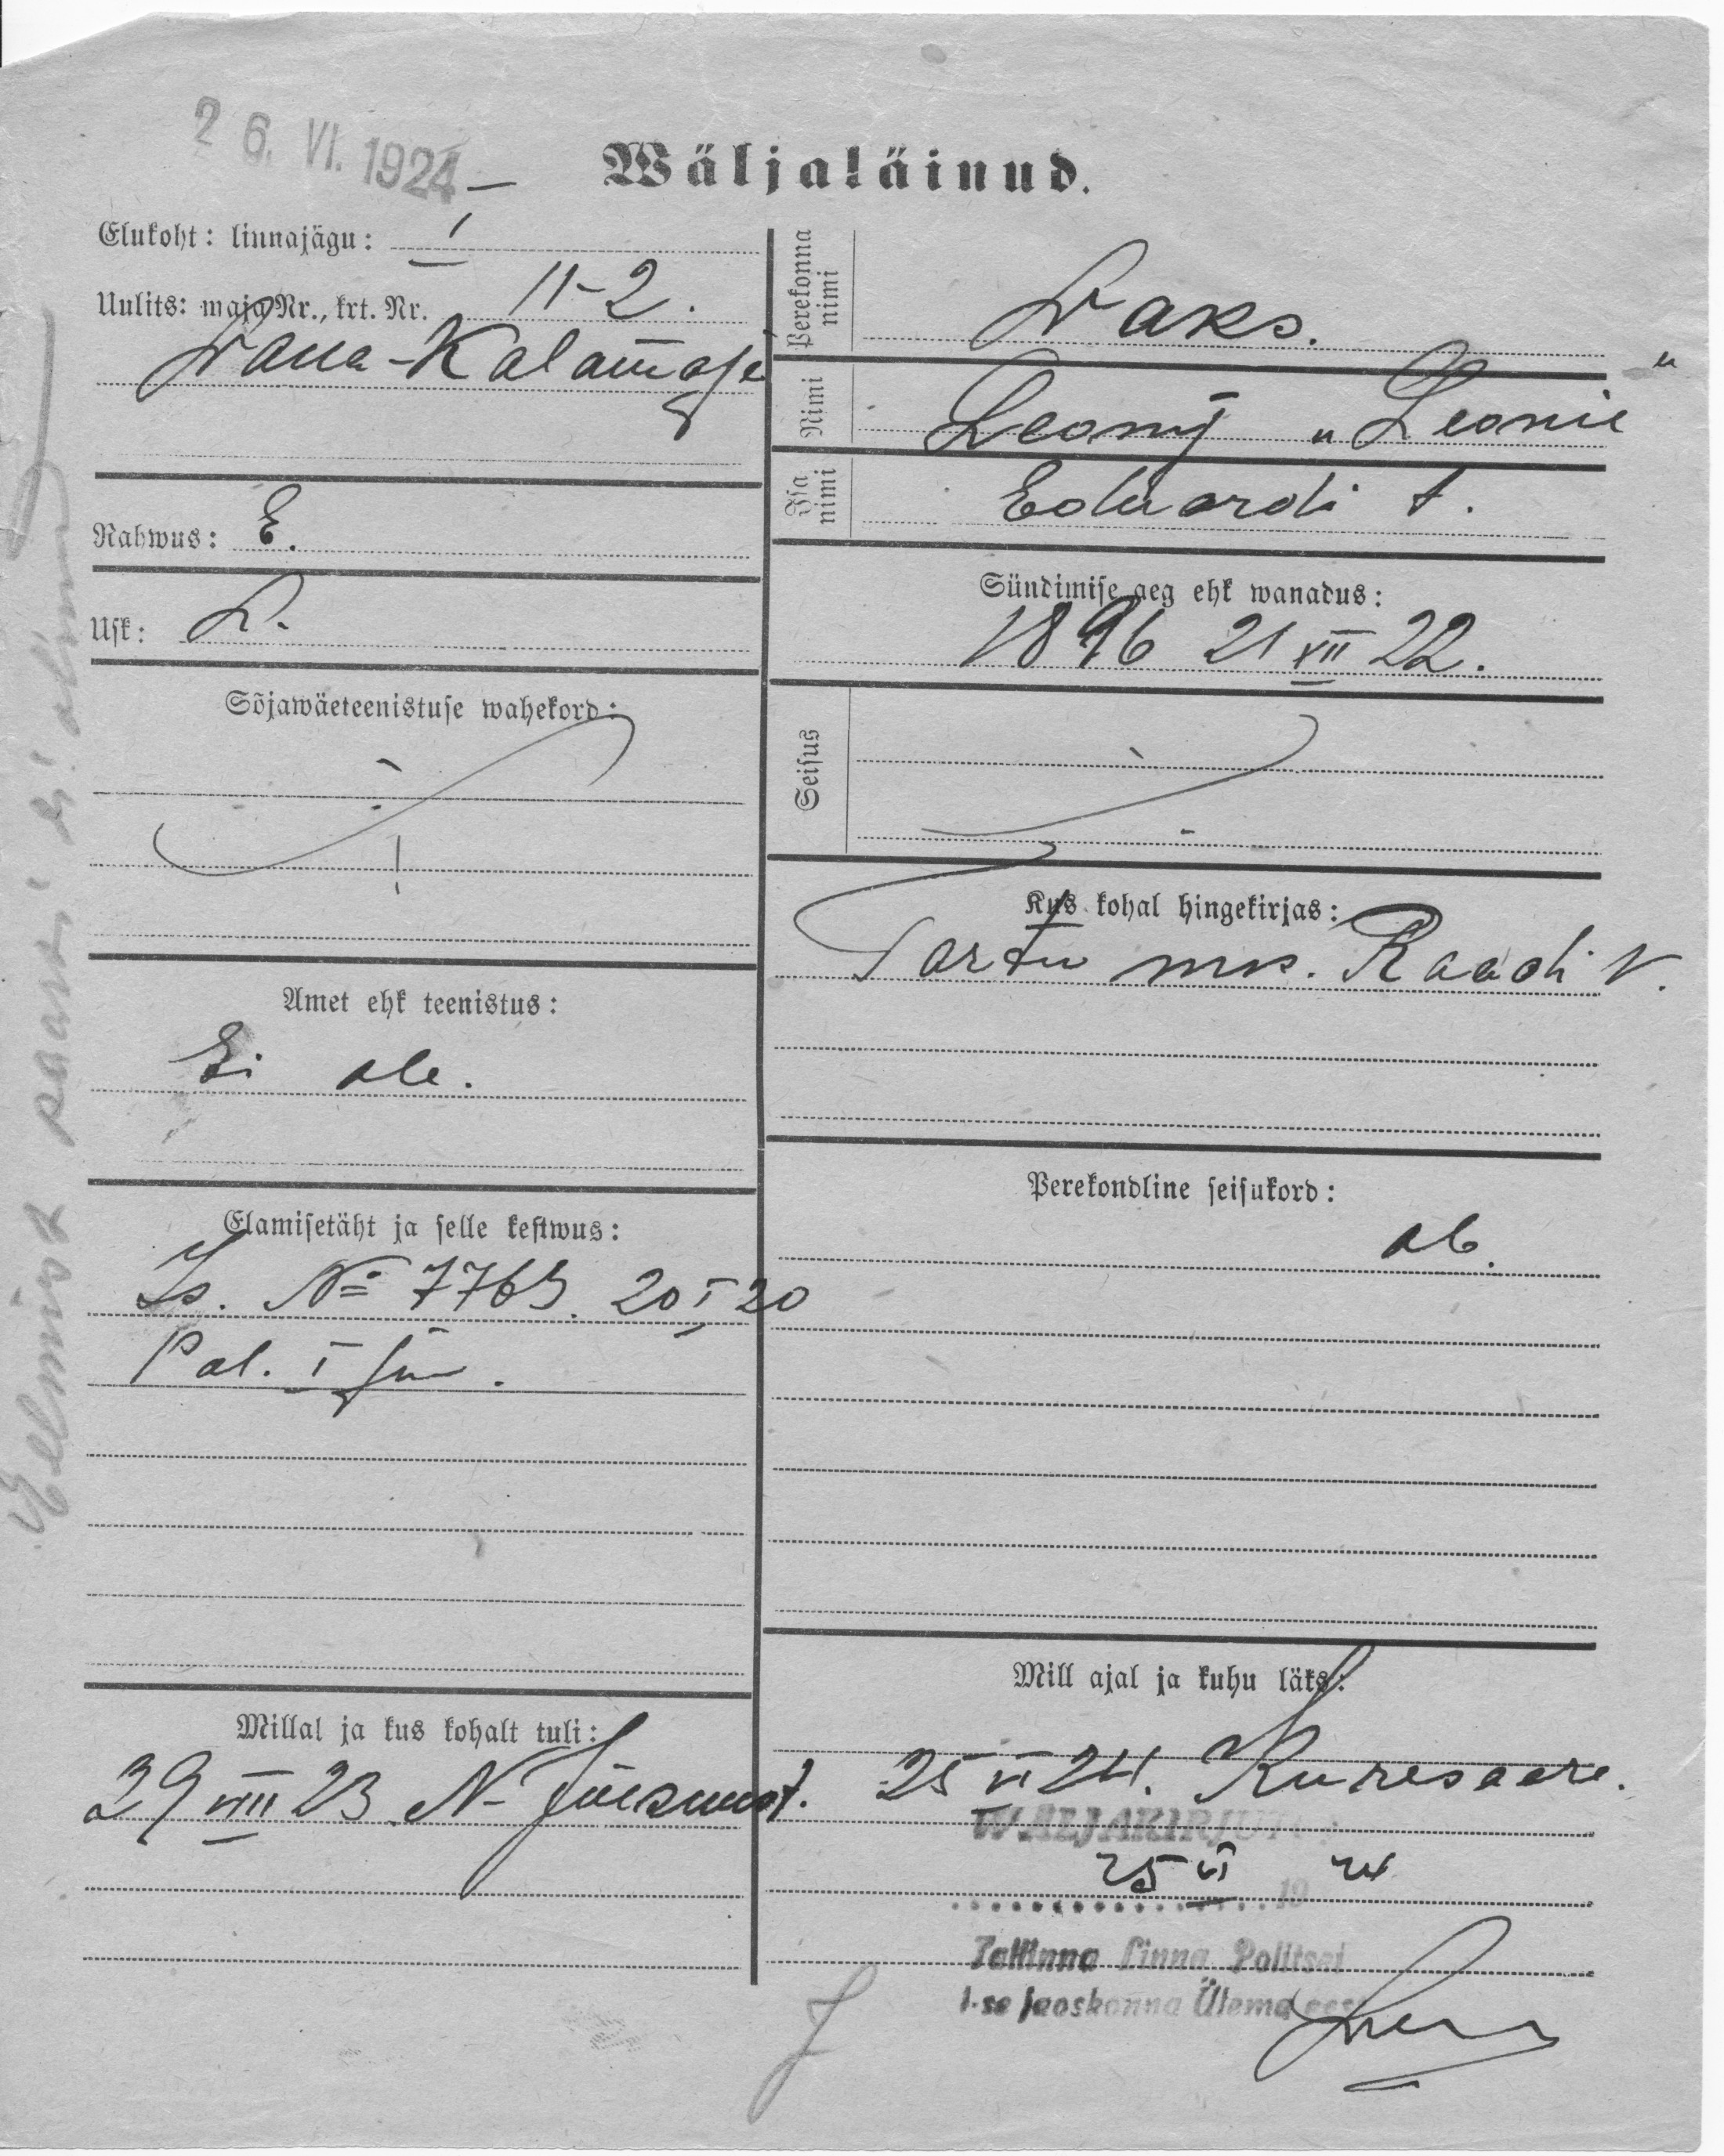 26. VI. 1924
Wäljaläinud.
Elukoht: linnajägu: I
Uulits: maja Nr., krt. Nr. 11-2.
Wana-Kalamaja
Rahwus: E.
Usk: L.
Sõjawäeteenistuse wahekord:
Amet ehk teenistus:
Ei ole.
Elamisetäht ja selle kestwus:
Is. № 7763. 20 I 20
Pol. I jsk.
Millal ja kus kohalt tuli:
29 VIII 23 N-Jõesuust.
Perekonna nimi
Waks.
Nimi
Leony „Leonie"
Isa nimi
Eduardi t.
Sündimise aeg ehk wanadus:
1896 21 XII 22.
Seisus
Kus kohal hingekirjas:
Tartu mk. Raadi v.
Perekondline seisukord:
ab.
Mill ajal ja kuhu läks:
25 VI 24. Kuresaare.
WÄLJAKIRJUT
25 VI 19 24
Tallinna Linna Politsei
I-se jaoskonna Ülema eest